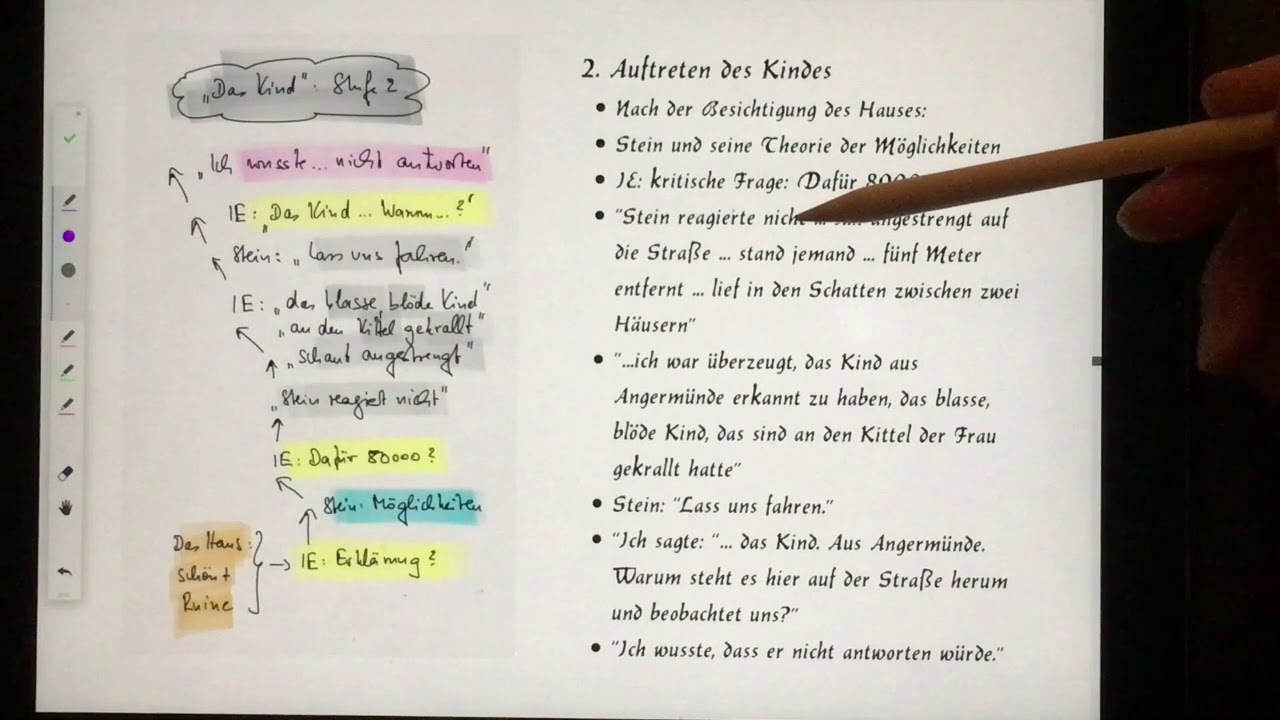 „Das Kind": Stufe 2
„Ich wusste... nicht antworten"
IE: „Das Kind ... Warum...?"
Stein: „Lass uns fahren."
IE: „das blasse, blöde Kind"
„an den Kittel gekrallt"
„schaut angestrengt"
„Stein reagiert nicht"
IE: Dafür 80000?
Stein: Möglichkeiten
IE: Erklärung?
Das Haus:
schön +
Ruine
2. Auftreten des Kindes
• Nach der Besichtigung des Hauses:
• Stein und seine Theorie der Möglichkeiten
• IE: kritische Frage: Dafür
• "Stein reagierte nicht ... angestrengt auf
die Straße ... stand jemand ... fünf Meter
entfernt ... lief in den Schatten zwischen zwei
Häusern"
• "...ich war überzeugt, das Kind aus
Angermünde erkannt zu haben, das blasse,
blöde Kind, das sind an den Kittel der Frau
gekrallt hatte"
• Stein: "Lass uns fahren."
• "Ich sagte: "... das Kind. Aus Angermünde.
Warum steht es hier auf der Straße herum
und beobachtet uns?"
• "Ich wusste, dass er nicht antworten würde."